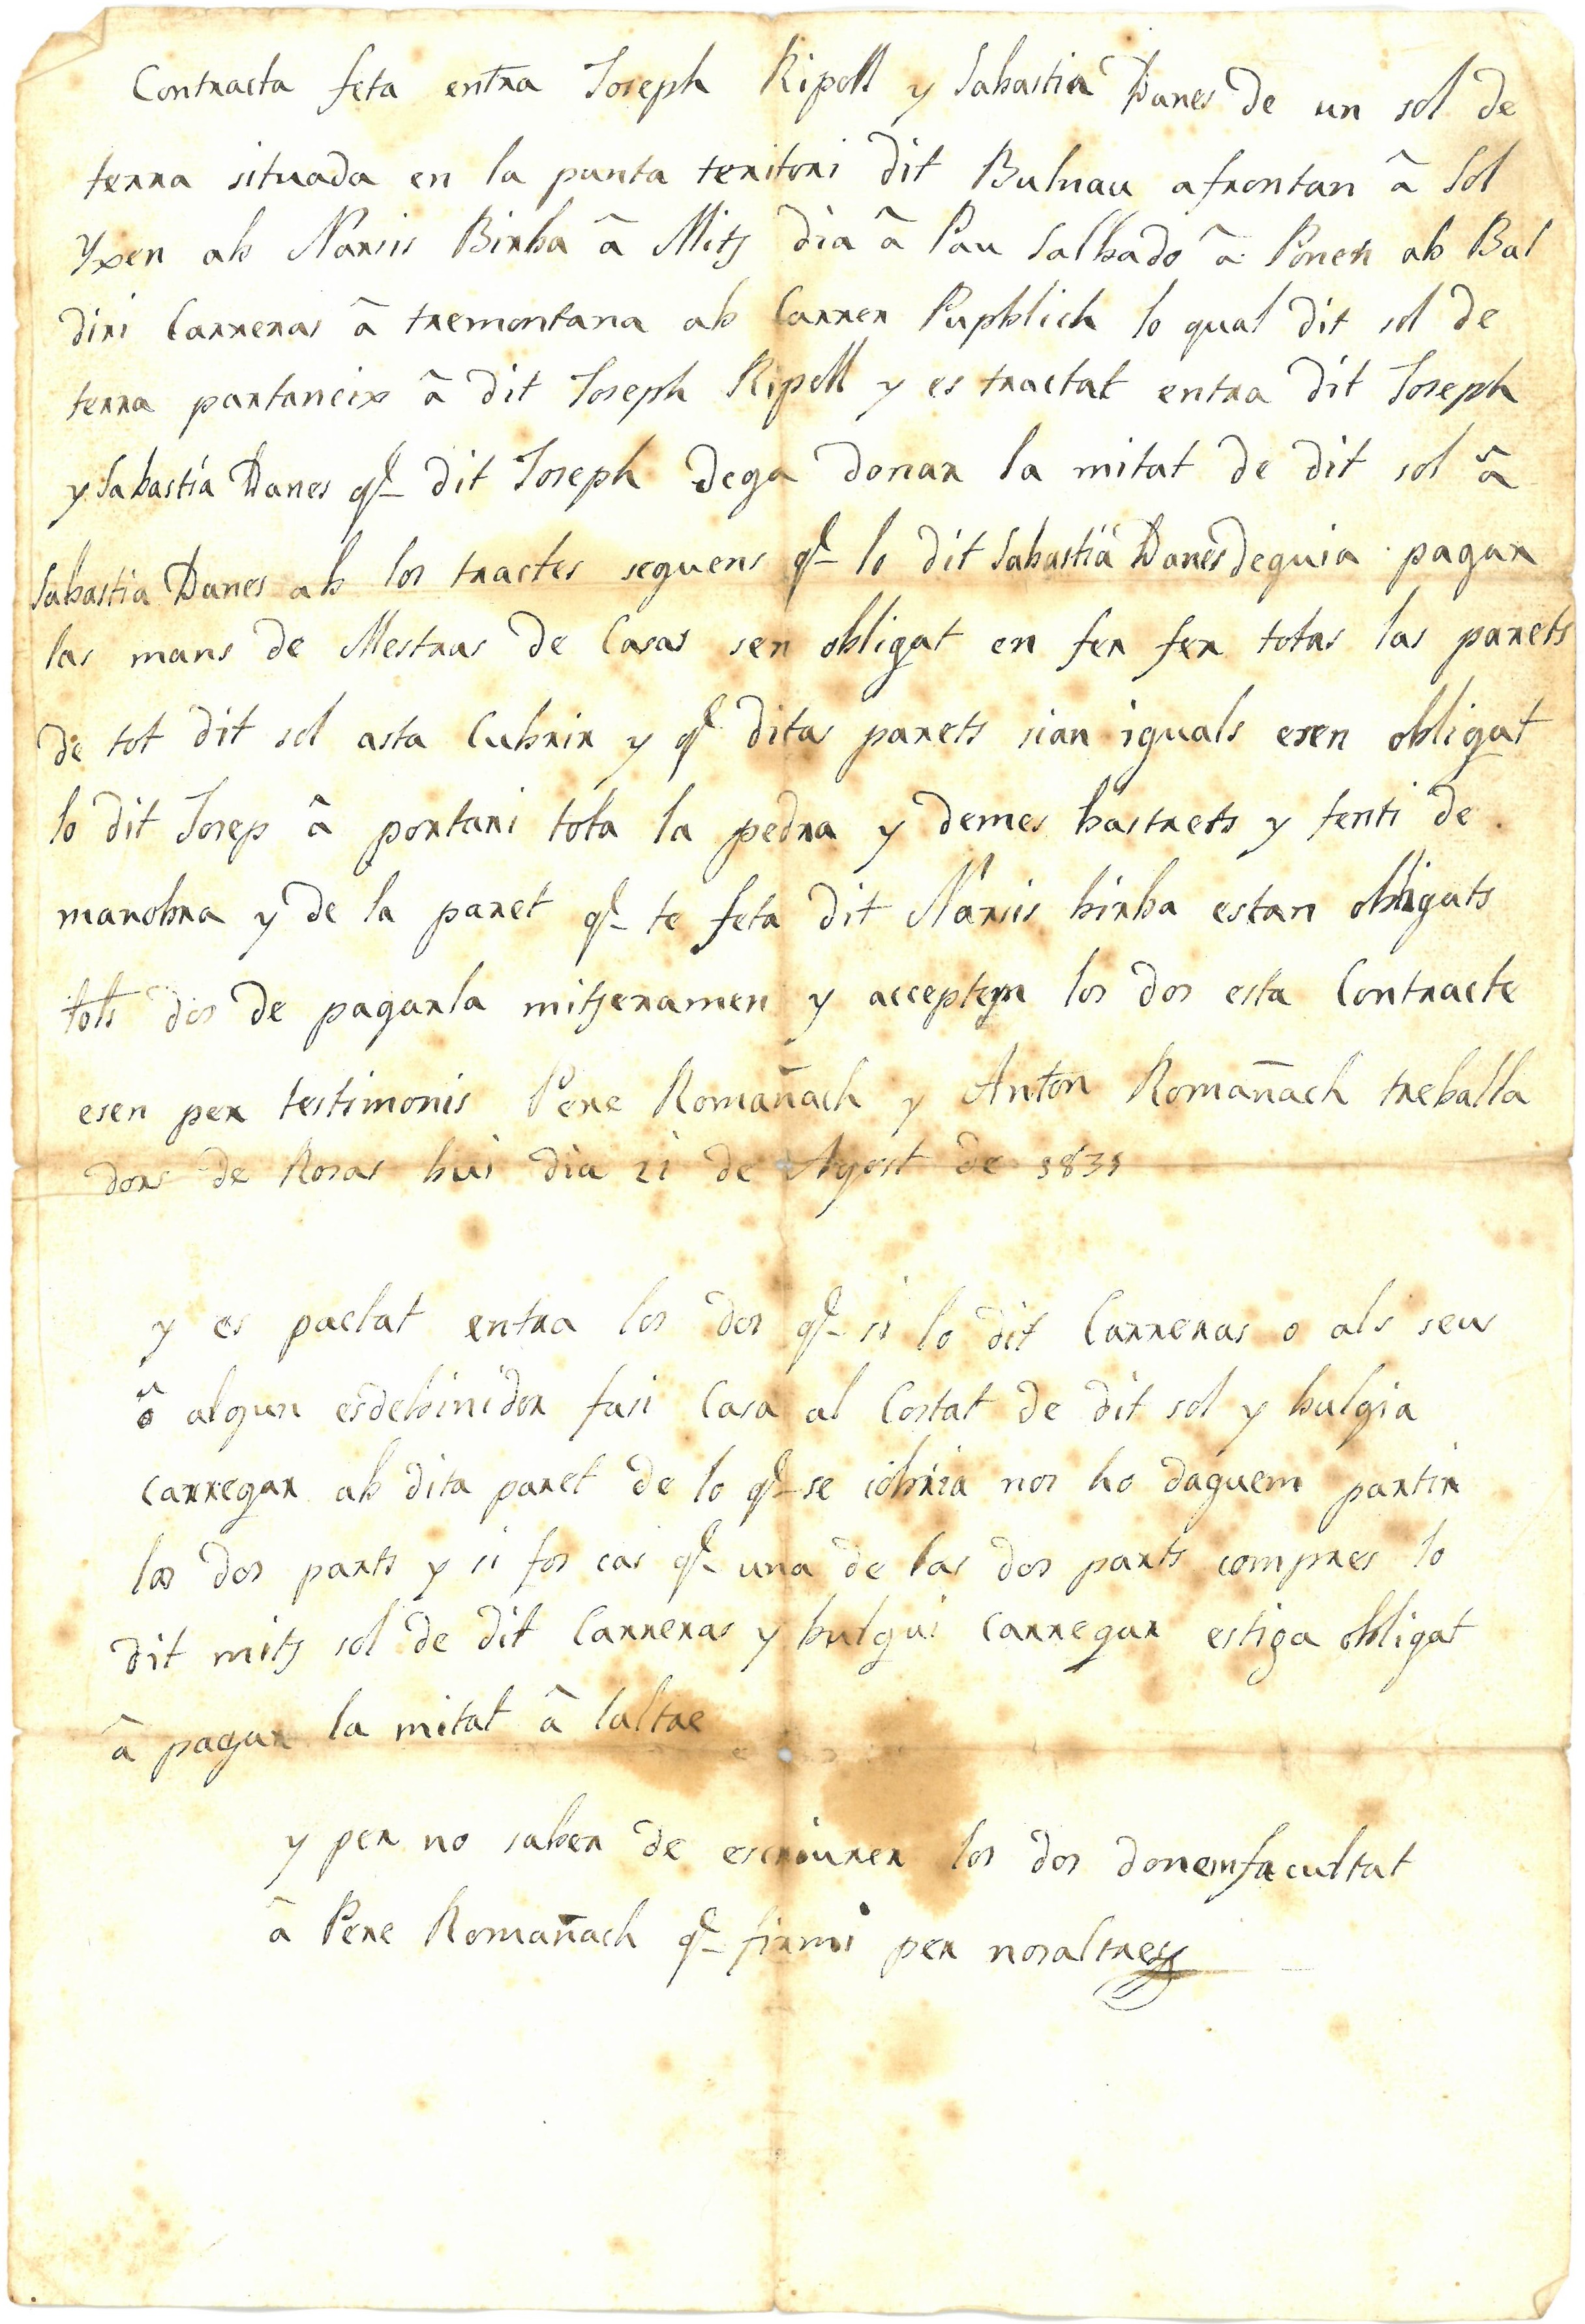 Contracta feta entra Joseph Ripoll y Sabastia Danes de un sol de
terra situada en la punta teritori dit Bulnau afrontan â Sol
Yxen ab Narsis Birba â Mitj dia â Pau Salbado â Ponen ab Bal
diri Carreras â tremontana ab Carrer Pupblich lo qual dit sol de
terra partaneix â dit Joseph Ripoll y es tractat entra dit Joseph
y Sabastiá Danes q.e dit Joseph dega donar la mitat de dit sol â
Sabastia Danes ab los tractes seguens q.e lo dit Sabastiá Danes deguia pagar
las mans de Mestras de Casas sen obligat en fer fer totas las parets
de tot dit sol asta Cubrir y q.e ditas parets sian iguals esen obligat
lo dit Josep â portari tota la pedra y demes bastrets y fenti de
manobra y de la paret q.e te feta dit Narsis birba estan obligats
tots dos de pagarla mitjeramen y acceptem los dos esta Contracte
esen per testimonis Pere Romañach y Anton Romañach treballa
dors de Rosas hui dia 21 de Agost de 1831
y es pactat entra los dos q.e si lo dit Carreras o als seus
ô algun esdebinidor fasi Casa al Costat de dit sol y bulgia
carregar ab dita paret de lo q.e se cobria nos ho daguem partir
las dos parts y si fos cas q.e una de las dos parts compres lo
dit mitj sol de dit Carreras y bulgui carregar estiga obligat
â pagar la mitat â laltre
y per no saber de escriurer los dos donem facultat
â Pere Romañach q.e firmi per nosaltres